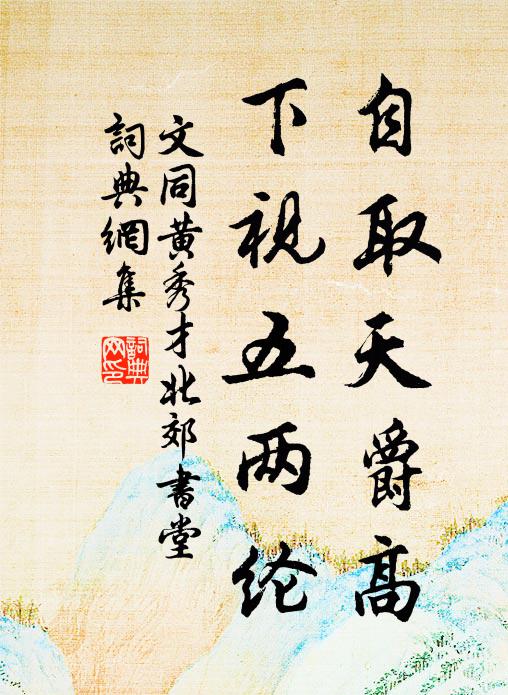 自取天爵高
下视五两纶
文同黄秀才北郊書堂
詞典網集
詞典网印